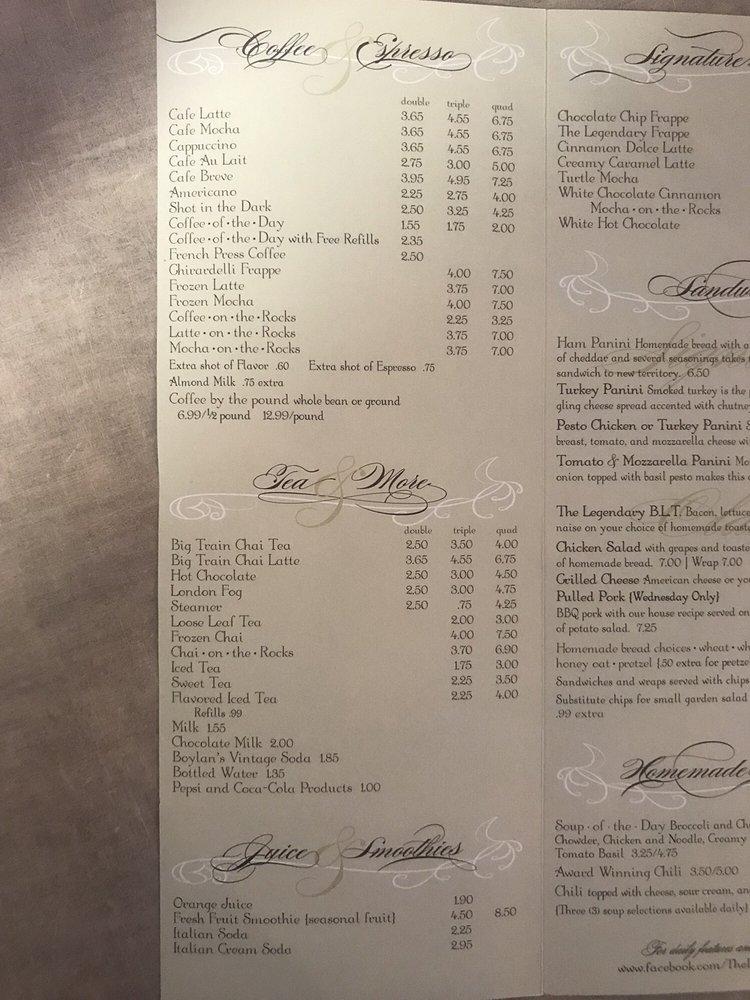 Coffee & Espresso
double triple quad
Cafe Latte 3.65 4.55 6.75
Cafe Mocha 3.65 4.55 6.75
Cappuccino 3.65 4.55 6.75
Cafe Au Lait 2.75 3.00 5.00
Cafe Breve 3.95 4.95 7.25
Americano 2.25 2.75 4.00
Shot in the Dark 2.50 3.25 4.25
Coffee•of•the•Day 1.55 1.75 2.00
Coffee•of•the•Day with Free Refills 2.35
French Press Coffee 2.50
Ghirardelli Frappe 4.00 7.50
Frozen Latte 3.75 7.00
Frozen Mocha 4.00 7.50
Coffee•on•the•Rocks 2.25 3.25
Latte•on•the•Rocks 3.75 7.00
Mocha•on•the•Rocks 3.75 7.00
Extra shot of Flavor .60 Extra shot of Espresso .75
Almond Milk .75 extra
Coffee by the pound whole bean or ground
6.99/½ pound 12.99/pound
Tea & More
double triple quad
Big Train Chai Tea 2.50 3.50 4.00
Big Train Chai Latte 3.65 4.55 6.75
Hot Chocolate 2.50 3.00 4.50
London Fog 2.50 3.00 4.75
Steamer 2.50 .75 4.25
Loose Leaf Tea 2.00 3.00
Frozen Chai 4.00 7.50
Chai•on•the•Rocks 3.70 6.90
Iced Tea 1.75 3.00
Sweet Tea 2.25 3.50
Flavored Iced Tea 2.25 4.00
Refills .99
Milk 1.55
Chocolate Milk 2.00
Boylan's Vintage Soda 1.85
Bottled Water 1.35
Pepsi and Coca-Cola Products 1.00
Juice & Smoothies
Orange Juice 1.90
Fresh Fruit Smoothie {seasonal fruit} 4.50 8.50
Italian Soda 2.25
Italian Cream Soda 2.95
Signature
Chocolate Chip Frappe
The Legendary Frappe
Cinnamon Dolce Latte
Creamy Caramel Latte
Turtle Mocha
White Chocolate Cinnamon
Mocha•on•the•Rocks
White Hot Chocolate
Ham Panini Homemade bread with a
of cheddar and several seasonings takes
sandwich to new territory. 6.50
Turkey Panini Smoked turkey is the
gling cheese spread accented with chutne
Pesto Chicken or Turkey Panini
breast, tomato, and mozzarella cheese wi
Tomato & Mozzarella Panini Mo
onion topped with basil pesto makes this
The Legendary B.L.T. Bacon, lettuce
naise on your choice of homemade toaste
Chicken Salad with grapes and toaste
of homemade bread. 7.00 | Wrap 7.00
Grilled Cheese American cheese or yo
Pulled Pork {Wednesday Only}
BBQ pork with our house recipe served on
of potato salad. 7.25
Homemade bread choices • wheat • wh
honey oat • pretzel {.50 extra for pretze
Sandwiches and wraps served with chips
Substitute chips for small garden salad
.99 extra
Homemade
Soup•of•the•Day Broccoli and Ch
Chowder, Chicken and Noodle, Creamy
Tomato Basil 3.25/4.75
Award Winning Chili 3.50/5.00
Chili topped with cheese, sour cream, an
{Three (3) soup selections available daily}
For daily features an
www.facebook.com/TheL